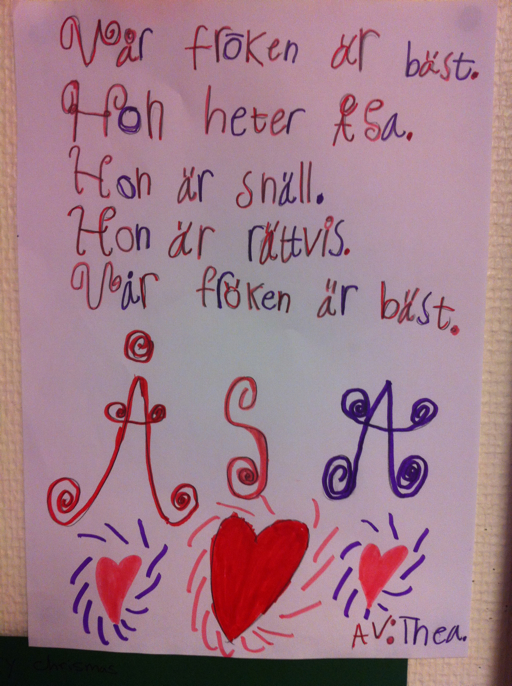 Vår fröken är bäst.
Hon heter Åsa.
Hon är snäll.
Hon är rättvis.
Vår fröken är bäst.
ÅSA
AV: Thea.
christmas